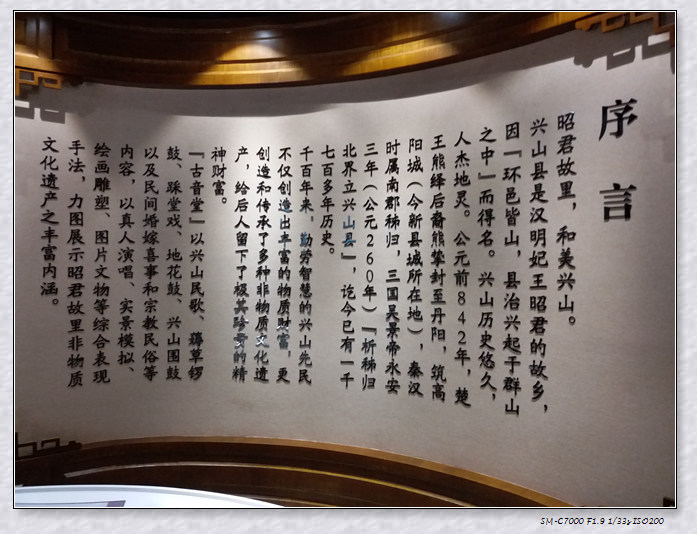 序言
昭君故里，和美兴山。
兴山县是汉明妃王昭君的故乡，
因『环邑皆山，县治兴起于群山
之中』而得名。兴山历史悠久，
人杰地灵。公元前842年，楚
王熊绎后裔熊挚封至丹阳，筑高
阳城（今新县城所在地），秦汉
时属南郡秭归，三国吴景帝永安
三年（公元260年）『析秭归
北界立兴山县』，讫今已有一千
七百多年历史。
千百年来，勤劳智慧的兴山先民
不仅创造出丰富的物质财富，更
创造和传承了多种非物质文化遗
产，给后人留下了极其珍贵的精
神财富。
『古音堂』以兴山民歌、薅草锣
鼓、踩堂戏、地花鼓、兴山围鼓
以及民间婚嫁喜事和宗教民俗等
内容，以真人演唱、实景模拟、
绘画雕塑、图片文物等综合表现
手法，力图展示昭君故里非物质
文化遗产之丰富内涵。
SM-C7000 F1.9 1/33s ISO200